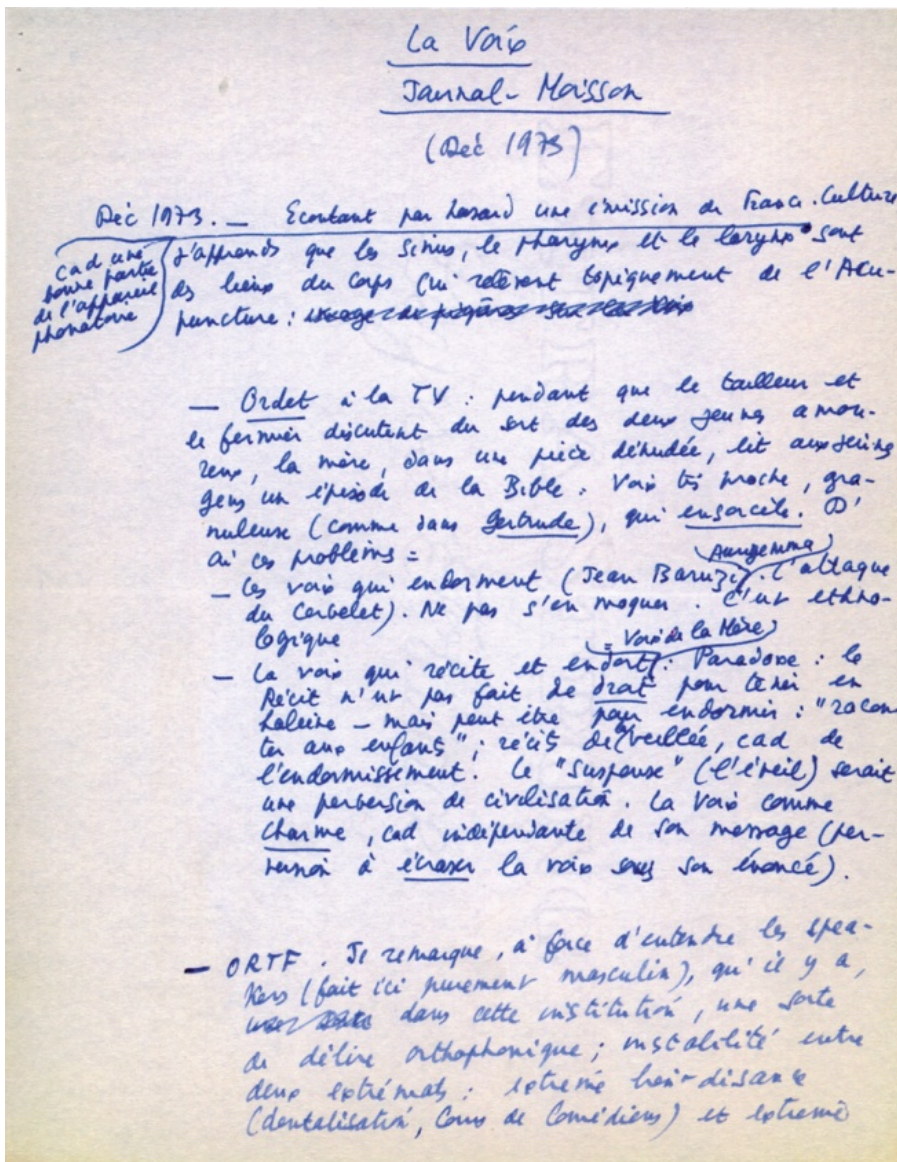 La Voix
Journal-Moisson
(Déc 1973)
Déc 1973. — Ecoutant par hasard une émission de France-Culture
j'apprends que les sinus, le pharynx et le larynx sont
cad une
bonne partie
de l'appareil
phonatoire
des lieux du corps qui relèvent topiquement de l'Acu-
puncture :
— Ordet à la TV : pendant que le tailleur et
le fermier discutent du sort des deux jeunes amou-
reux, la mère, dans une pièce dénudée, lit aux jeunes
gens un épisode de la Bible : Voix très proche, gra-
nuleuse (comme dans Gertrude), qui ensorcèle. D'
où ces problèmes =
Aurigemma
— Les voix qui endorment (Jean Baruzi, . L'attaque
du Corbelet). Ne pas s'en moquer. C'est ethno-
logique
= Voix de la Mère
— La voix qui récite et endort : Paradoxe : le
Récit n'est pas fait de droit pour tenir en
haleine – mais peut être pour endormir : "racon
ter aux enfants" ; récits de veillée, cad de
l'endormissement. Le "suspense" (l'éveil) serait
une perversion de civilisation. La voix comme
charme, cad indépendante de son message (per-
version à écraser la voix sous son énoncé).
— ORTF. Je remarque, à force d'entendre les spea-
kers (fait ici purement masculin), qu'il y a,
dans cette institution, une sorte
de délire orthophonique ; instabilité entre
deux extrémats : extrême bien-disance
(dentalisation, Cours de Comédiens) et extrême